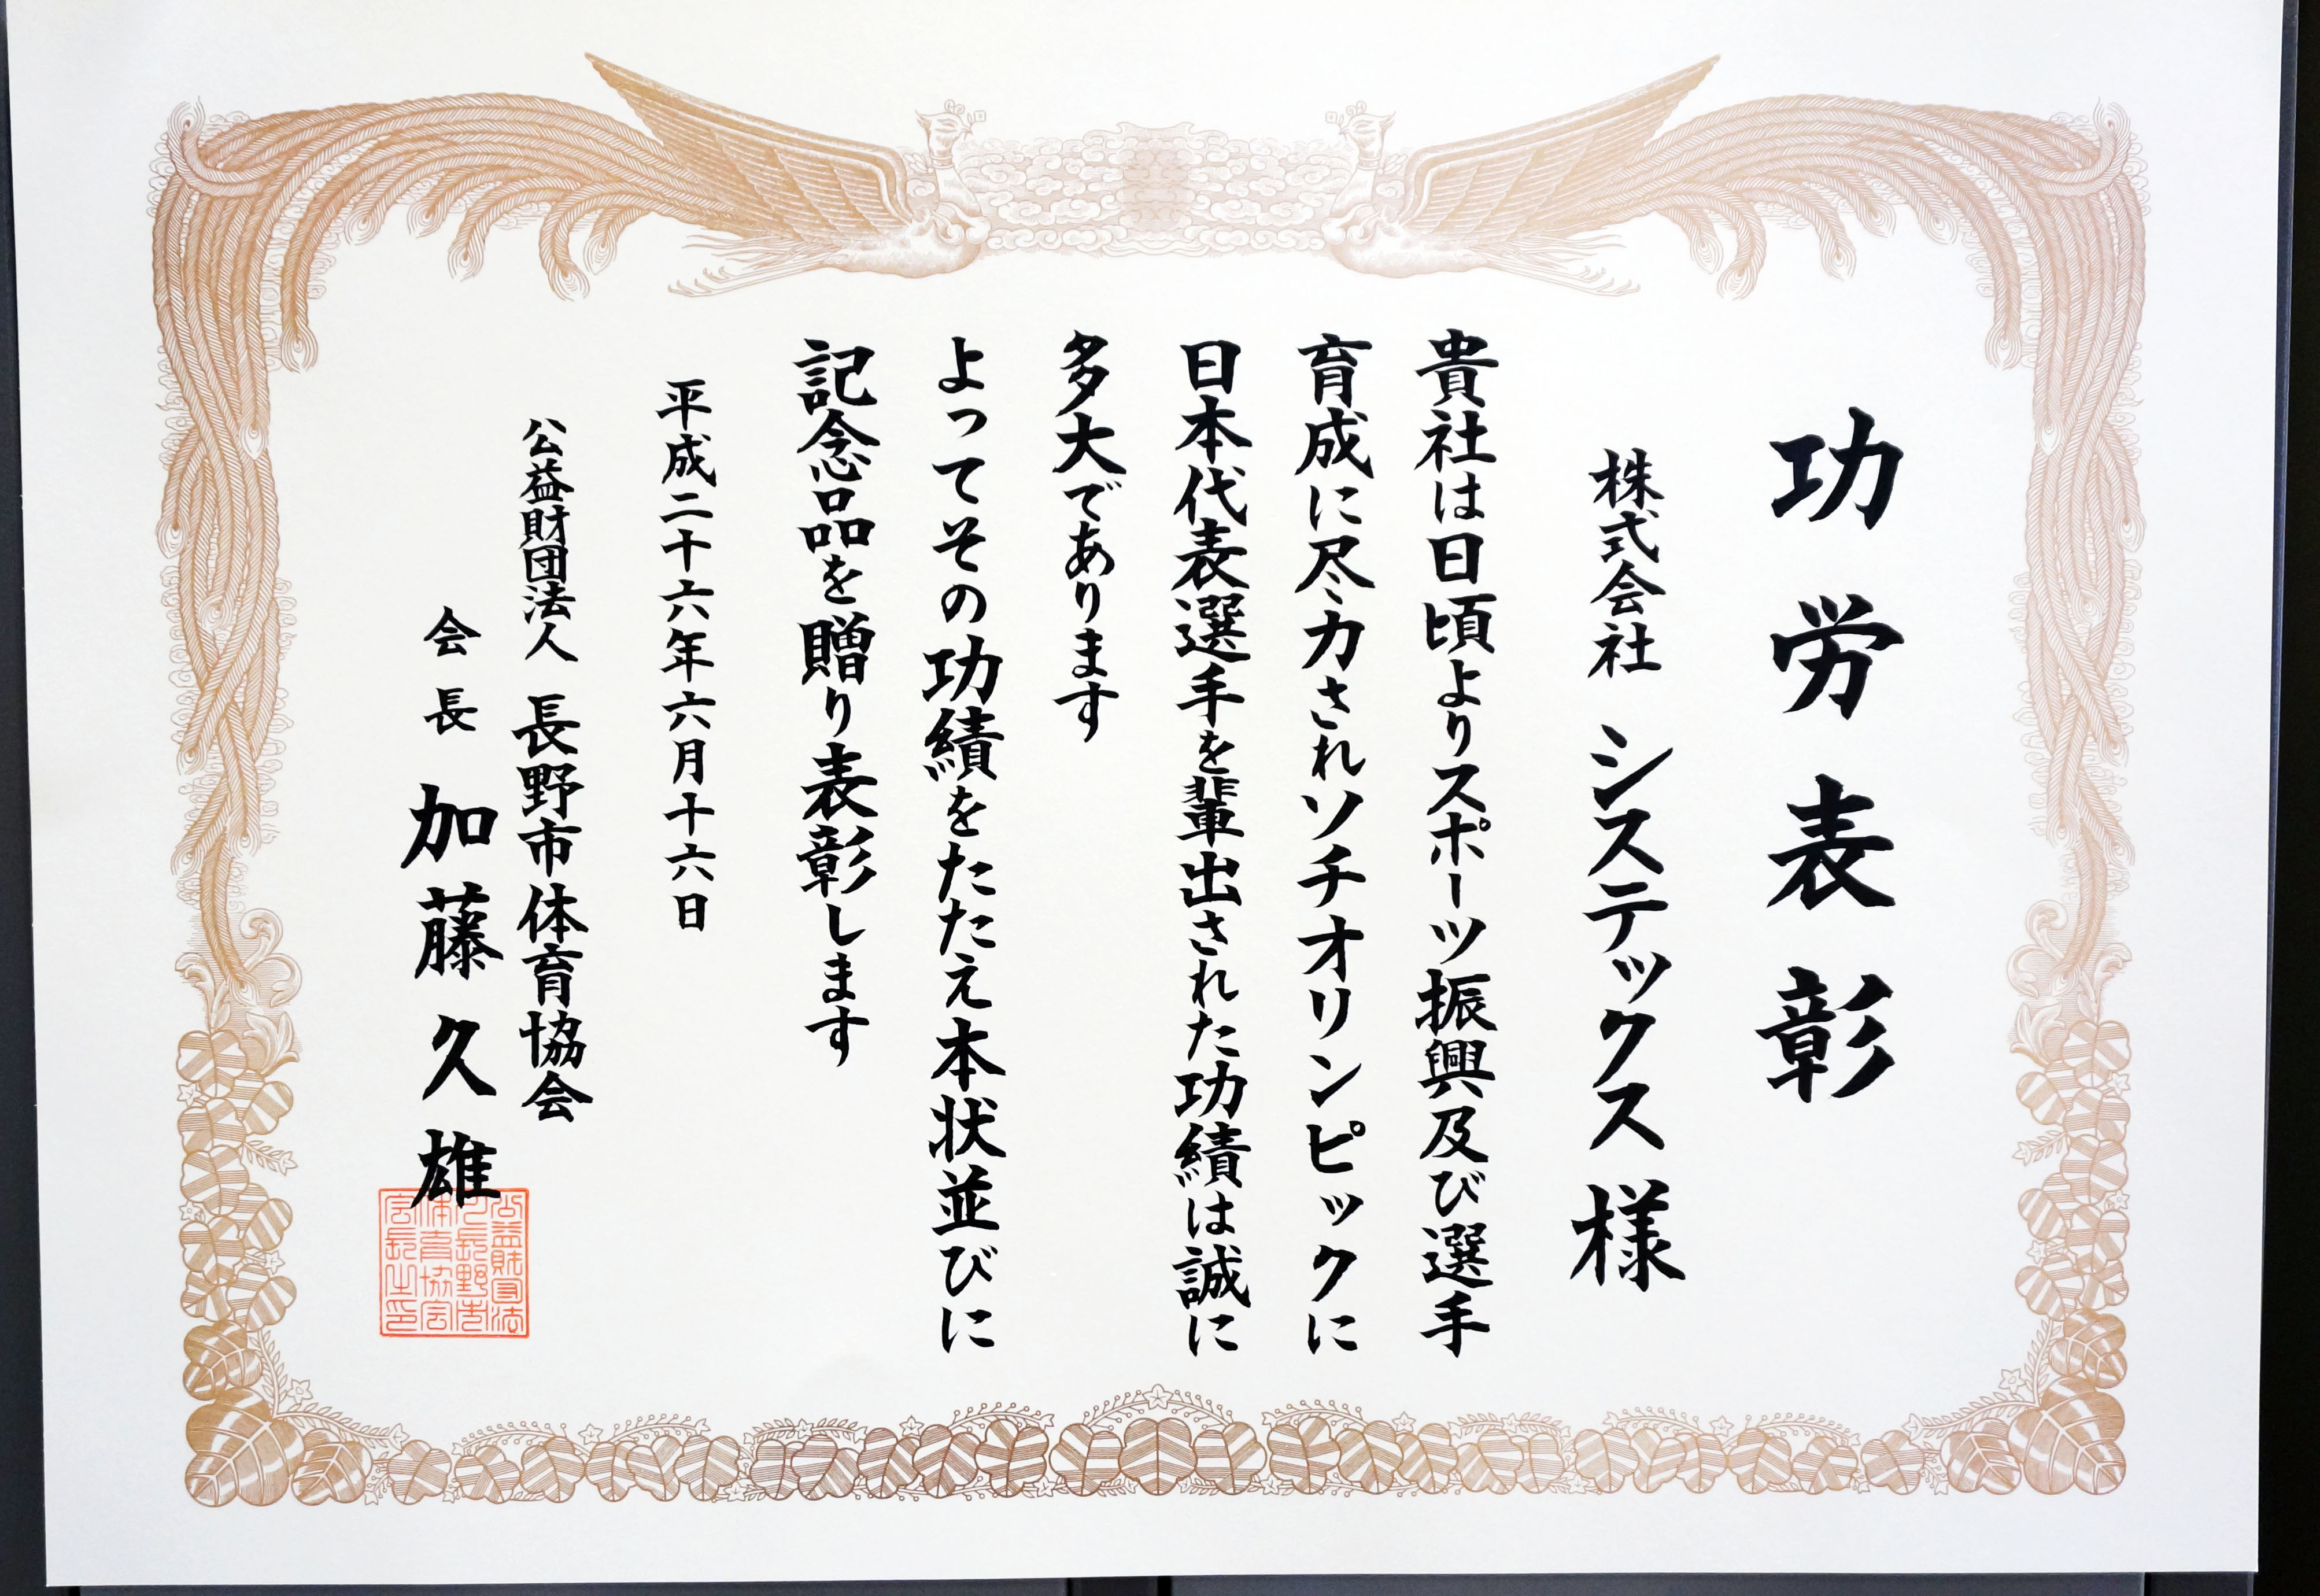 功労表彰
株式会社 システックス様
貴社は日頃よりスポーツ振興及び選手
育成に尽力されソチオリンピックに
日本代表選手を輩出された功績は誠に
多大であります
よってその功績をたたえ本状並びに
記念品を贈り表彰します
平成二十六年六月十六日
公益財団法人 長野市体育協会
会長 加藤久雄
公益財団法
人長野市
体育協会
会長之印